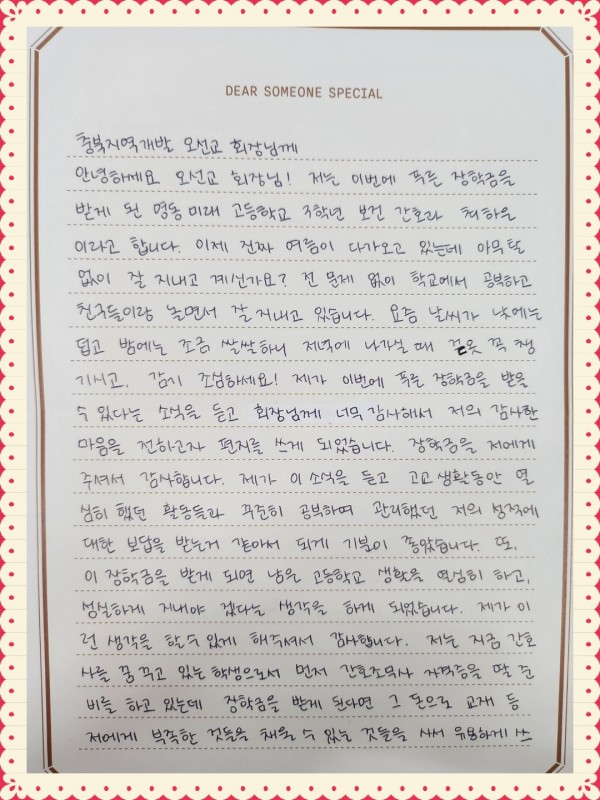 DEAR SOMEONE SPECIAL
충북지역개발 오선교 회장님께
안녕하세요 오선교 회장님! 저는 이번에 푸른 장학금을
받게 된 영동미래 고등학교 3학년 보건 간호과 최하은
이라고 합니다. 이제 진짜 여름이 다가오고 있는데 아무 탈
없이 잘 지내고 계신가요? 전 문제 없이 학교에서 공부하고
친구들이랑 놀면서 잘 지내고 있습니다. 요즘 날씨가 낮에는
덥고 밤에는 조금 쌀쌀하니 저녁에 나가실 때 겉옷 꼭 챙
기시고, 감기 조심하세요! 제가 이번에 푸른 장학금을 받을
수 있다는 소식을 듣고 회장님께 너무 감사해서 저의 감사한
마음을 전하고자 편지를 쓰게 되었습니다. 장학금을 저에게
주셔서 감사합니다. 제가 이 소식을 듣고 고교 생활동안 열
심히 했던 활동들과 꾸준히 공부하며 관리했던 저의 성적에
대한 보답을 받는거 같아서 되게 기분이 좋았습니다. 또,
이 장학금을 받게 되면 남은 고등학교 생활을 열심히 하고,
성실하게 지내야 겠다는 생각을 하게 되었습니다. 제가 이
런 생각을 할 수 있게 해주셔서 감사합니다. 저는 지금 간호
사를 꿈 꾸고 있는 학생으로서 먼저 간호조무사 자격증을 딸 준
비를 하고 있는데 장학금을 받게 된다면 그 돈으로 교재 등
저에게 부족한 것들을 채울 수 있는 것들을 사서 유용하게 쓰